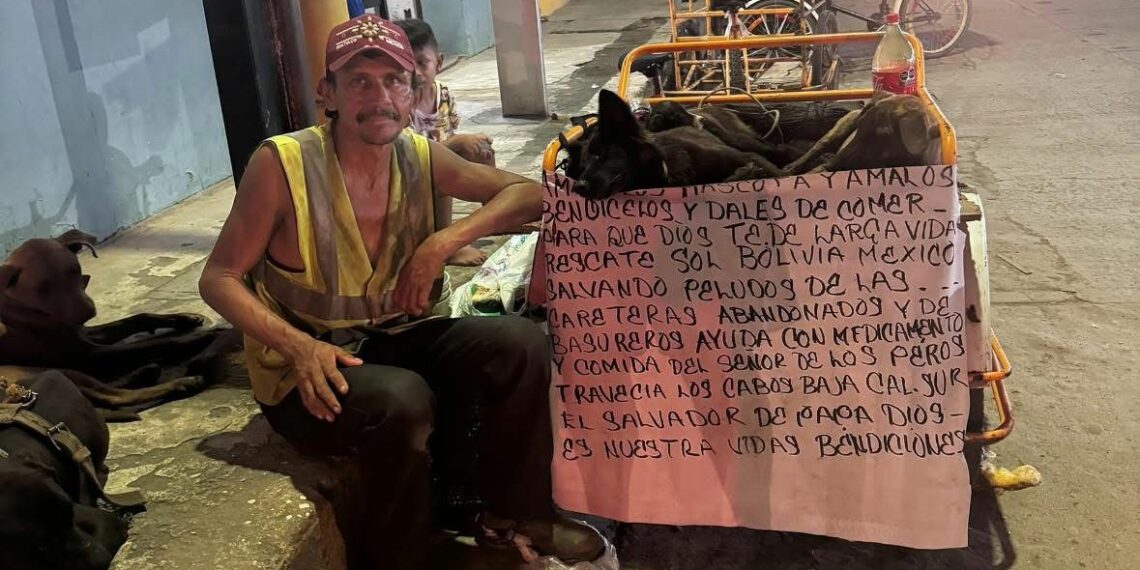 MASCOTA Y AMALOS
BENDICELOS Y DALES DE COMER-
PARA QUE DIOS TE DE LARGA VIDA
RESCATE SOL BOLIVIA MEXICO
SALVANDO PELUDOS DE LAS...
CARETERAS ABANDONADOS Y DE
BASUREROS AYUDA CON MEDICAMENTO
Y COMIDA DEL SEÑOR DE LOS PEROS
TRAVECIA LOS CABOS BAJA CAL. SUR
EL SALVADOR DE PAPA DIOS-
ES NUESTRA VIDAS BENDICIONES